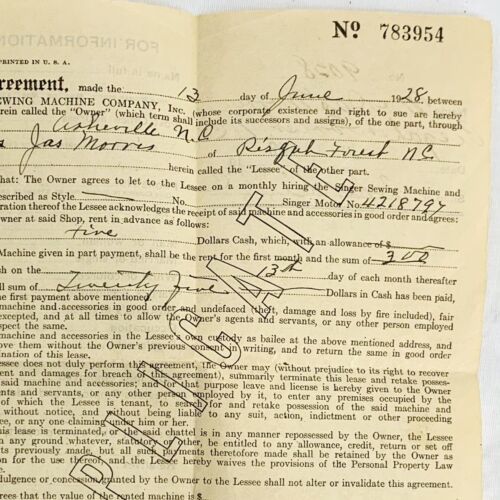 FOR INFORMATION
Nº 783954
PRINTED IN U. S. A.
reement, made the 13 day of June 1928, between
EWING MACHINE COMPANY, Inc. (whose corporate existence and right to sue are hereby
rein called the "Owner" (which term shall include its successors and assigns), of the one part, through
Asheville N.C
s Jas Morris of Pisgah Forest NC
herein called the "Lessee" of the other part.
hat: The Owner agrees to let to the Lessee on a monthly hiring the Singer Sewing Machine and
escribed as Style No. Singer Motor No. 4218797
ration thereof the Lessee acknowledges the receipt of said machine and accessories in good order and agrees:
wner at said Shop, rent in advance as follows:
Five Dollars Cash, which, with an allowance of $
Machine given in part payment, shall be rent for the first month and the sum of 3 00
sh on the 13th day of each month thereafter
ll sum of Twenty Five Dollars in Cash has been paid,
he first payment above mentioned.
machine and accessories in good order and undefaced (theft, damage and loss by fire included), fair
excepted, and at all times to allow the Owner's agents and servants, or any other person employed
spect the same.
machine and accessories in the Lessee's own custody as bailee at the above mentioned address, and
ove them without the Owner's previous consent in writing, and to return the same in good order
ination of this lease.
essee does not duly perform this agreement, the Owner may (without prejudice to its right to recover
ent and damages for breach of this agreement), summarily terminate this lease and retake posses-
said machine and accessories; and for that purpose leave and license is hereby given to the Owner
ents and servants, or any other person employed by it, to enter any premises occupied by the
of which the Lessee is tenant, to search for and retake possession of the said machine and
without notice, and without being liable to any suit, action, indictment or other proceeding
ee, or any one claiming under him or her.
this lease is terminated, or the said chattel is in any manner repossessed by the Owner, the Lessee
n any ground whatever, statutory or other, be entitled to any allowance, credit, return or set off
nts previously made, but all such payments theretofore made will belong to the Owner absolutely as
on for the use thereof, and the Lessee hereby waives the provisions of the Personal Property Law
e.
dulgence or concession granted by the Owner to the Lessee shall not alter or invalidate this agreement.
rees that the value of the rented machine is $
DUPLICATE